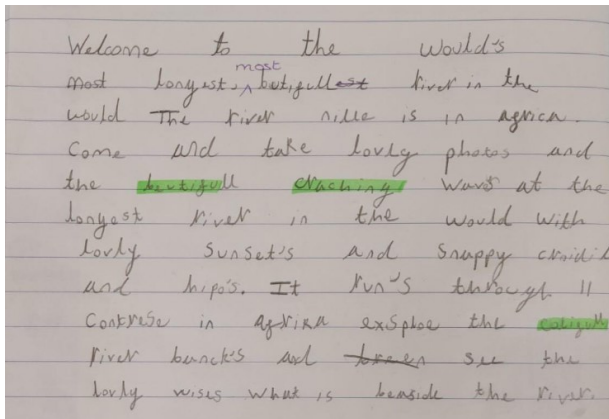 Welcome to the would's
most longest, most butifullest river in the
would The river nille is in agrica.
Come and take lovly photos and
the beutifull craching waves at the
longest river in the would with
lovly sunset's and snappy croidil
and hipo's. It run's through 11
Contrese in afrika exsploe the
river banck's and see the
lovly wises what is beaside the river.